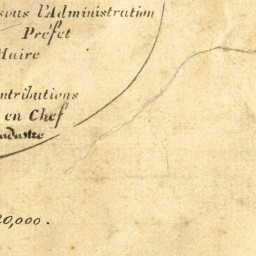 sous l'Administration
Préfet
Maire
ntributions
en Chef
adastre
0,000.